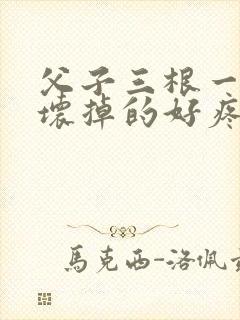 父子三根一
壞掉的好疼
馬克西-洛佩